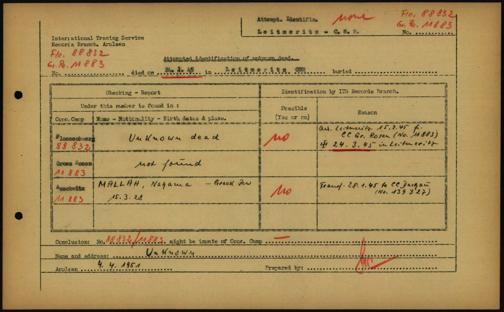 Attempt. Identific. none Flo. 88832
Leitmeritz - C.S.R. G.R. 11883
No.
International Tracing Service
Records Branch, Arolsen
Flo. 88832
G.R. 11883
Attempted identification of unknown dead.
No. died on 24.3.45 in Leitmeritz CSR buried
Checking - Report
Identification by ITS Records Branch.
Under this number is found in :
Possible
(Yes or no)
Reason
Conc.Camp Name - Nationality - Birth dates & place.
Flossenburg
88 832
Unknown dead
no
Leitmeritz 15.2.45 fr.
CC Gr. Rosen (No. 11883)
24.3.45 in Leitmeritz
Gross Rosen
11883
not found
Auschwitz
11 883
MALLAH, Nagama
15.3.22
no
Transf. 28.1.45 to CC
(No. 139327)
Conclusion: No. 88832/11883 might be inmate of Conc. Camp —
Name and address: Unknown
Arolsen 4.4.1951 Prepared by: